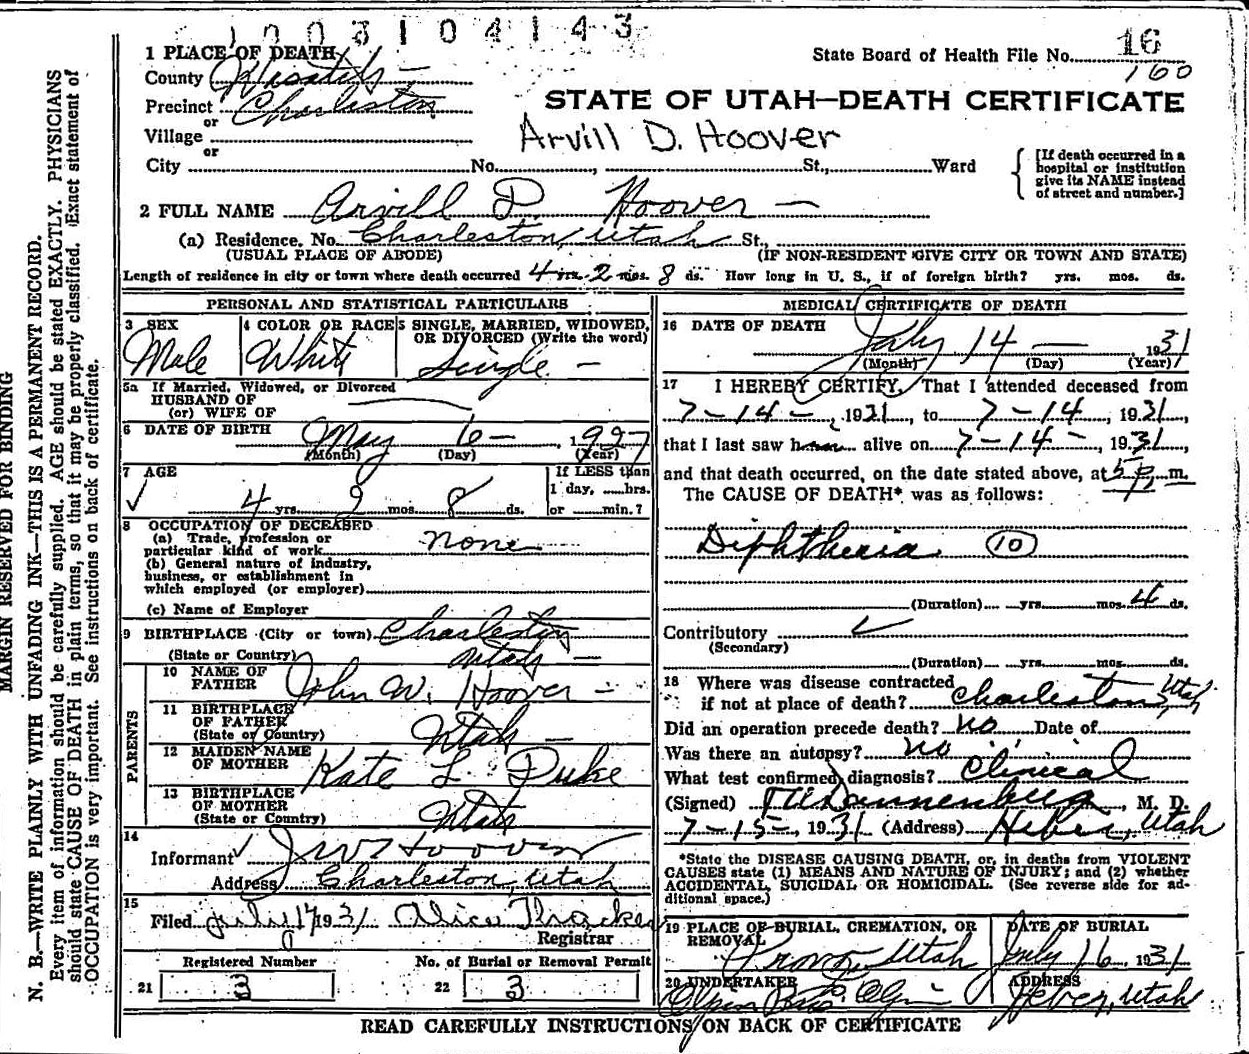 1003104143
1 PLACE OF DEATH
State Board of Health File No. 16
160
County Wasatch
STATE OF UTAH—DEATH CERTIFICATE
Precinct Charleston
or
Village
Arvill D. Hoover
or
City No. , St., Ward
[If death occurred in a
hospital or institution
give its NAME instead
of street and number.]
2 FULL NAME Arvill D. Hoover
(a) Residence. No. Charleston, Utah St.,
(USUAL PLACE OF ABODE) (IF NON-RESIDENT GIVE CITY OR TOWN AND STATE)
Length of residence in city or town where death occurred 4 yrs. 2 mos. 8 ds. How long in U. S., if of foreign birth? yrs. mos. ds.
PERSONAL AND STATISTICAL PARTICULARS
3 SEX 4 COLOR OR RACE 5 SINGLE, MARRIED, WIDOWED,
OR DIVORCED (Write the word)
Male White Single
5a If Married, Widowed, or Divorced
HUSBAND OF
(or) WIFE OF
6 DATE OF BIRTH May 6 , 1927
(Month) (Day) (Year)
7 AGE If LESS than
1 day, hrs.
4 yrs. 2 mos. 8 ds. or min.?
8 OCCUPATION OF DECEASED
(a) Trade, profession or
particular kind of work none
(b) General nature of industry,
business, or establishment in
which employed (or employer)
(c) Name of Employer
9 BIRTHPLACE (City or town) Charleston
(State or Country) Utah
PARENTS
10 NAME OF
FATHER John W. Hoover
11 BIRTHPLACE
OF FATHER
(State or Country) Utah
12 MAIDEN NAME
OF MOTHER Kate L. Duke
13 BIRTHPLACE
OF MOTHER
(State or Country) Utah
14
Informant J W Hoover
Address Charleston, Utah
15
Filed July 17 1931 Alice Thacker
Registrar
Registered Number No. of Burial or Removal Permit
21 3 22 3
MEDICAL CERTIFICATE OF DEATH
16 DATE OF DEATH
July 14 1931
(Month) (Day) (Year)
17 I HEREBY CERTIFY, That I attended deceased from
7-14-, 1931, to 7-14, 1931,
that I last saw him alive on 7-14-, 1931,
and that death occurred, on the date stated above, at 5 p. m.
The CAUSE OF DEATH* was as follows:
Diphtheria 10
(Duration) yrs. mos. 4 ds.
Contributory
(Secondary)
(Duration) yrs. mos. ds.
18 Where was disease contracted
if not at place of death? Charleston, Utah
Did an operation precede death? No Date of
Was there an autopsy? no
What test confirmed diagnosis? Clinical
(Signed) Dannenberg, M. D.
7-15-, 1931 (Address) Heber, Utah
*State the DISEASE CAUSING DEATH, or, in deaths from VIOLENT
CAUSES state (1) MEANS AND NATURE OF INJURY; and (2) whether
ACCIDENTAL, SUICIDAL OR HOMICIDAL. (See reverse side for ad-
ditional space.)
19 PLACE OF BURIAL, CREMATION, OR
REMOVAL
Provo, Utah
DATE OF BURIAL
July 16 1931
20 UNDERTAKER
ADDRESS
Heber, Utah
READ CAREFULLY INSTRUCTIONS ON BACK OF CERTIFICATE
MARGIN RESERVED FOR BINDING
N. B.—WRITE PLAINLY WITH UNFADING INK—THIS IS A PERMANENT RECORD.
Every item of information should be carefully supplied. AGE should be stated EXACTLY. PHYSICIANS
should state CAUSE OF DEATH in plain terms, so that it may be properly classified. Exact statement of
OCCUPATION is very important. See instructions on back of certificate.